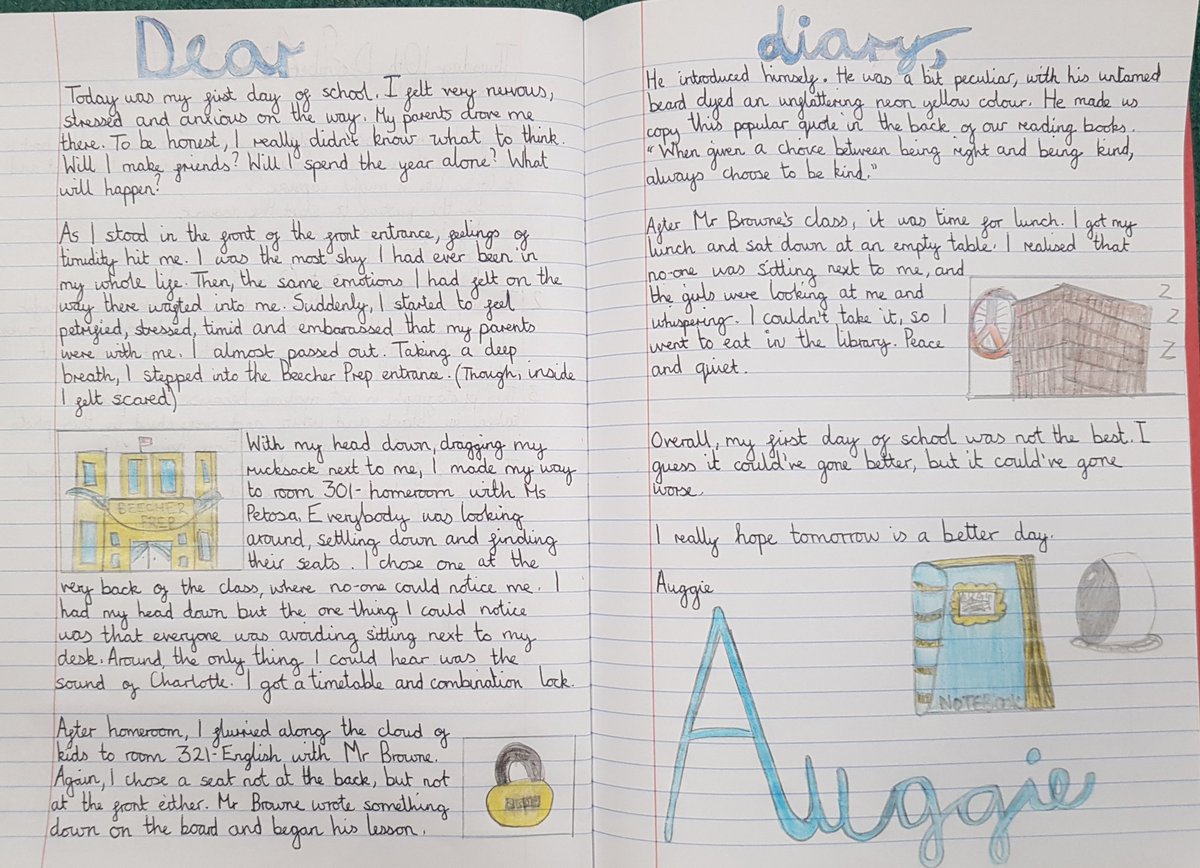 Dear
Today was my first day of school. I felt very nervous,
stressed and anxious on the way. My parents drove me
there. To be honest, I really didn't know what to think.
Will I make friends? Will I spend the year alone? What
will happen?
As I stood in the front of the front entrance, feelings of
timidity hit me. I was the most shy I had ever been in
my whole life. Then, the same emotions I had felt on the
way there wafted into me. Suddenly, I started to feel
petrified, stressed, timid and embarassed that my parents
were with me. I almost passed out. Taking a deep
breath, I stepped into the Beecher Prep entrance. (Though, inside
I felt scared)
BEECHER
PREP
With my head down, dragging my
rucksack next to me, I made my way
to room 301- homeroom with Ms
Petosa. Everybody was looking
around, settling down and finding
their seats. I chose one at the
very back of the class, where no-one could notice me. I
had my head down but the one thing I could notice
was that everyone was avoiding sitting next to my
desk. Around, the only thing I could hear was the
sound of Charlotte. I got a timetable and combination lock.
After homeroom, I flurried along the cloud of
kids to room 321- English with Mr Browne.
Again, I chose a seat not at the back, but not
at the front either. Mr Browne wrote something
down on the board and began his lesson.
diary,
He introduced himself. He was a bit peculiar, with his untamed
beard dyed an unflattering neon yellow colour. He made us
copy this popular quote in the back of our reading books.
"When given a choice between being right and being kind,
always choose to be kind."
After Mr Browne's class, it was time for lunch. I got my
lunch and sat down at an empty table. I realised that
no-one was sitting next to me, and
the girls were looking at me and
whispering. I couldn't take it, so I
went to eat in the library. Peace
and quiet.
Z
Z
Z
Overall, my first day of school was not the best. I
guess it could've gone better, but it could've gone
worse.
I really hope tomorrow is a better day.
Auggie
NOTEBOOK
Auggie